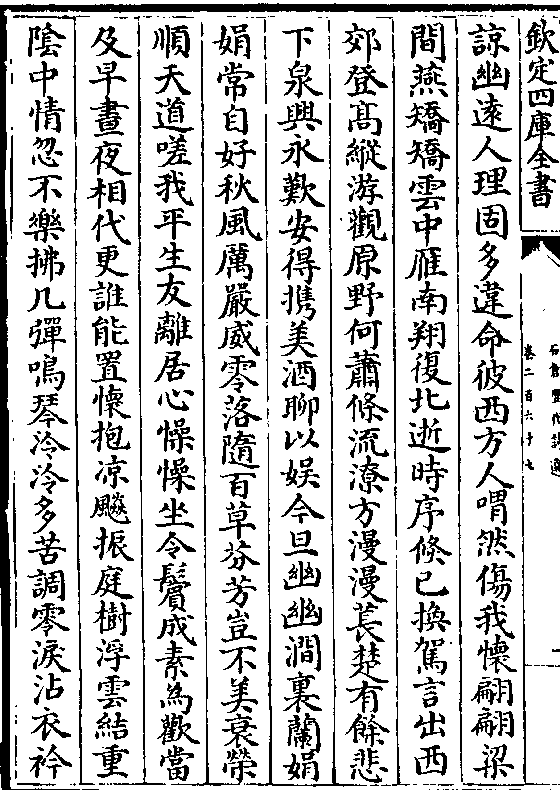 欽定四庫全書
石倉歷代詩選
卷二百六十七
諒幽遠人理固多違命彼西方人喟然傷我懷翩翩梁
間燕矯矯雲中雁南翔復北逝時序倏已換駕言出西
郊登高縱游觀原野何蕭條流潦方漫漫萇楚有餘悲
下泉興永歎安得携美酒聊以娱今旦幽幽澗裏蘭娟
娟常自好秋風厲嚴威零落隨百草芬芳豈不美衰榮
順天道嗟我平生友離居心懆懆坐令鬢成素為歡當
及早晝夜相代更誰能置懷抱凉飈振庭樹浮雲結重
陰中情忽不樂拂几彈鳴琴泠泠多苦調零淚沾衣衿